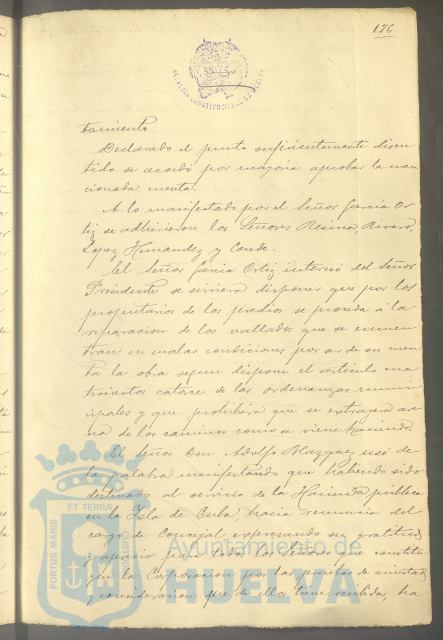 176
ALCALDIA CONSTITUCIONAL DE HUELVA
tamiento
Declarado el punto suficientemente discu
tido se acordó por mayoria aprobar la men
cionada cuenta.
A lo manifestado por el Señor Garcia Or
tiz se adhirieron los Señores Resina, Rivero,
Lopez Hernandez y Conde.
El Señor Garcia Ortiz interesó del Señor
Presidente se sirviera disponer que por los
propietarios de los predios se proceda á la
reparacion de los vallados que se encuen
tran en malas condiciones por ser de su cuen
ta la obra segun dispone el artículo cua
trocientos catorce de las ordenanzas muni
cipales y que prohibiera que se extragera are
na de los caminos como se viene haciendo.
El Señor Don Adolfo Vazquez usó de
la palabra manifestando que habiendo sido
destinado al servicio de la Hacienda pública
en la Isla de Cuba, hacia renuncia del
cargo de Concejal expresando su gratitud
y aprecio para todos los Señores que constitu
yen la Corporacion por las pruebas de amistad
y consideracion que de ellos tiene recibida, ha
PORTUS MARIS
ET TERRAE
Ayuntamiento de
HUELVA